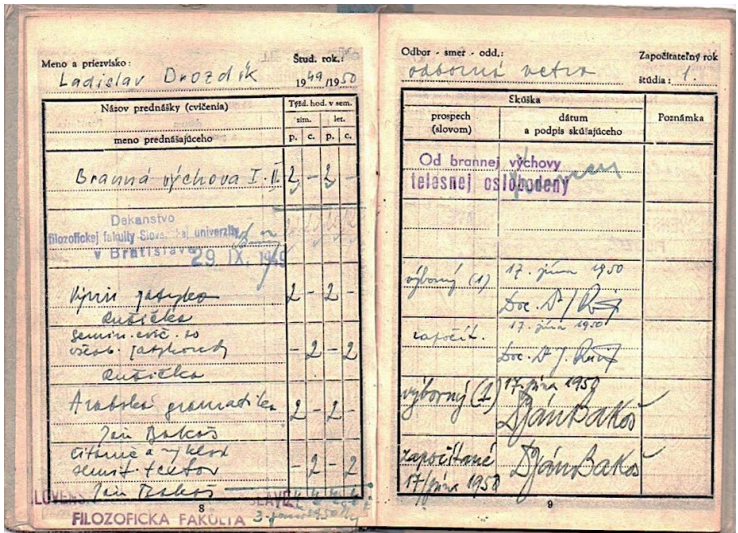 Meno a priezvisko:
Ladislav Drozdík
Štud. rok:
1949/1950
Názov prednášky (cvičenia)
meno prednášajúceho
Týžd. hod. v sem.
zim. let.
p. c. p. c.
Branná výchova I. II. 2 – 2 –
Dekanstvo
filozofickej fakulty Slovenskej univerzity
v Bratislave
29 IX. 1949
2 – 2 –
Ružička
semin. cvič. zo
všeob. – 2 – 2
Ružička
Arabská gramatika 2 – 2 –
Ján Bakoš
čítanie a výklad
semit. textov – 2 – 2
Ján Bakoš
8
FILOZOFICKÁ FAKULTA
Odbor - smer - odd.:
odborná vetva
Započítateľný rok
štúdia: 1.
Skúška
prospech
(slovom)
dátum
a podpis skúšajúceho
Poznámka
Od brannej výchovy
telesnej oslobodený
výborný (1) 17. júna 1950
Doc. Dr J.
započít. 17. júna 1950
Doc. Dr J.
výborný (1) 17. júna 1950
Dr Ján Bakoš
započítané Dr Ján Bakoš
17/júna 1950
9